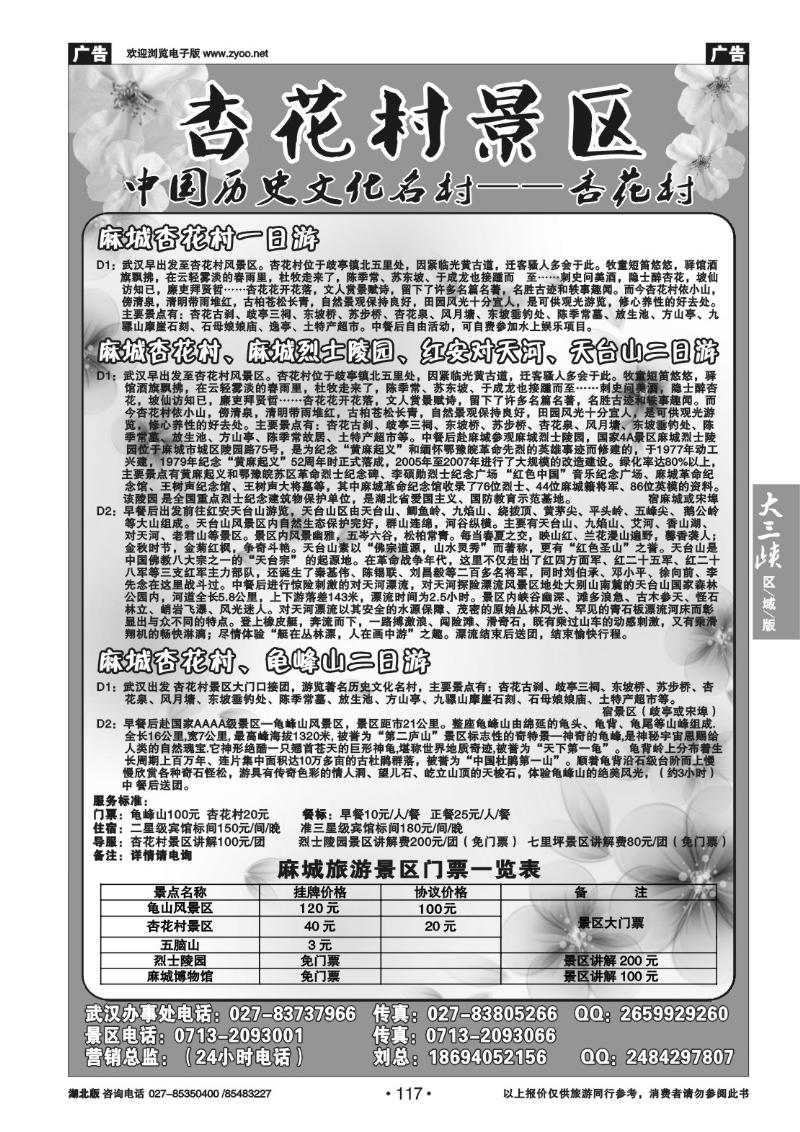 广告 欢迎浏览电子版 www.zyoo.net 广告
杏花村景区
中国历史文化名村——杏花村
麻城杏花村一日游
D1：武汉早出发至杏花村风景区。杏花村位于歧亭镇北五里处，因紧临光黄古道，迁客骚人多会于此。牧童短笛悠悠，驿馆酒
旗飘拂，在云轻雾淡的春雨里，杜牧走来了，陈季常、苏东坡、于成龙也接踵而 至……刺史问美酒，隐士醉杏花，坡仙
访知已，廉吏拜贤哲……杏花花开花落，文人赏景赋诗，留下了许多名篇名著，名胜古迹和轶事趣闻。而今杏花村依小山，
傍清泉，清明带雨堆红，古柏苍松长青，自然景观保持良好，田园风光十分宜人，是可供观光游览，修心养性的好去处。
主要景点有：杏花古刹、歧亭三祠、东坡桥、苏步桥、杏花泉、风月塘、东坡垂钓处、陈季常墓、放生池、方山亭、九
骡山摩崖石刻、石母娘娘庙、逸亭、土特产超市。中餐后自由活动，可自费参加水上娱乐项目。
麻城杏花村、麻城烈士陵园、红安对天河、天台山二日游
D1：武汉早出发至杏花村风景区。杏花村位于歧亭镇北五里处，因紧临光黄古道，迁客骚人多会于此。牧童短笛悠悠，驿
馆酒旗飘拂，在云轻雾淡的春雨里，杜牧走来了，陈季常、苏东坡、于成龙也接踵而至……刺史问美酒，隐士醉杏
花，坡仙访知已，廉吏拜贤哲……杏花花开花落，文人赏景赋诗，留下了许多名篇名著，名胜古迹和轶事趣闻。而
今杏花村依小山，傍清泉，清明带雨堆红，古柏苍松长青，自然景观保持良好，田园风光十分宜人，是可供观光游
览，修心养性的好去处。主要景点有：杏花古刹、歧亭三祠、东坡桥、苏步桥、杏花泉、风月塘、东坡垂钓处、陈
季常墓、放生池、方山亭、陈季常故居、土特产超市等。中餐后赴麻城参观麻城烈士陵园，国家4A景区麻城烈士陵
园位于麻城市城区陵园路75号，是为纪念“黄麻起义”和缅怀鄂豫皖革命先烈的英雄事迹而修建的，于1977年动工
兴建，1979年纪念“黄麻起义”52周年时正式落成，2005年至2007年进行了大规模的改造建设。绿化率达80%以上，
主要景点有黄麻起义和鄂豫皖苏区革命烈士纪念碑、李硕勋烈士纪念广场“红色中国”音乐纪念广场、麻城革命纪
念馆、王树声纪念馆、王树声大将墓等，其中麻城革命纪念馆收录了76位烈士、44位麻城籍将军、86位英模的资料。
该陵园 是全国重点烈士纪念建筑物保护单位，是湖北省爱国主义、国防教育示范基地。 宿麻城或宋埠
D2：早餐后出发前往红安天台山游览，天台山区由天台山、鲫鱼岭、九焰山、绕拨顶、黄茅尖、平头岭、五峰尖、鹅公岭
等大山组成。天台山风景区内自然生态保护完好，群山连绵，河谷纵横。主要有天台山、九焰山、艾河、香山湖、
对天河、老君山等景区。景区内风景幽雅，五岑六谷，松柏常青。每当春夏之交，映山红、兰花漫山遍野，馨香袭人；
金秋时节，金菊红枫，争奇斗艳。天台山素以“佛宗道源，山水灵秀”而著称，更有“红色圣山”之誉。天台山是
中国佛教八大宗之一的“天台宗” 的起源地。在革命战争年代，这里不仅走出了红四方面军、红二十五军、红二十
八军等三支红军主力部队，还诞生了秦基伟、陈锡联、刘昌毅等二百多名将军，同时刘伯承、邓小平、徐向前、李
先念在这里战斗过。中餐后进行惊险刺激的对天河漂流，对天河探险漂流风景区地处大别山南簏的天台山国家森林
公园内，河道全长5.8公里，上下游落差143米，漂流时间为2.5小时。景区内峡谷幽深、滩多浪急、古木参天、怪石
林立、峭岩飞瀑、风光迷人。对天河漂流以其安全的水源保障、茂密的原始丛林风光、罕见的青石板漂流河床而彰
显出与众不同的特点。登上橡皮艇，奔流而下，一路搏激浪、闯险滩、滑奇石，既有乘过山车的动感刺激，又有乘滑
翔机的畅快淋漓；尽情体验“艇在丛林漂，人在画中游”之趣。漂流结束后送团，结束愉快行程。
麻城杏花村、龟峰山二日游
D1：武汉出发 杏花村景区大门口接团，游览著名历史文化名村，主要景点有：杏花古刹、歧亭三祠、东坡桥、苏步桥、杏
花泉、风月塘、东坡垂钓处、陈季常墓、放生池、方山亭、九骡山摩崖石刻、石母娘娘庙、土特产超市等。
宿景区（歧亭或宋埠）
D2：早餐后赴国家AAAA级景区—龟峰山风景区，景区距市21公里。整座龟峰山由绵延的龟头、龟背、龟尾等山峰组成.
全长16公里,宽7公里,最高峰海拔1320米,被誉为“第二庐山”景区标志性的奇特景—神奇的龟峰,是神秘宇宙恩赐给
人类的自然瑰宝.它神形绝酷一只翘首苍天的巨形神龟,堪称世界地质奇迹,被誉为“天下第一龟”。龟背岭上分布着生
长周期上百万年、连片集中面积达10万多亩的古杜鹃群落，被誉为“中国杜鹃第一山”。顺着龟背沿石级台阶而上慢
慢欣赏各种奇石怪松，游具有传奇色彩的情人洞、望儿石、屹立山顶的天梭石，体验龟峰山的绝美风光，（约3小时）
中 餐后送团。
服务标准：
门票：龟峰山100元 杏花村20元 餐标：早餐10元/人/餐 正餐25元/人/餐
住宿：二星级宾馆标间150元/间/晚 准三星级宾馆标间180元/间/晚
导服：杏花村景区讲解100元/团 烈士陵园景区讲解费200元/团（免门票） 七里坪景区讲解费80元/团（免门票）
备注：详情请电询
麻城旅游景区门票一览表
景点名称 挂牌价格 协议价格 备 注
龟山风景区 120 元 100元 景区大门票
杏花村景区 40 元 20 元
五脑山 3 元
烈士陵园 免门票 景区讲解 200 元
麻城博物馆 免门票 景区讲解 100 元
武汉办事处电话：027-83737966 传真：027-83805266 QQ：2659929260
景区电话：0713-2093001 传真：0713-2093066
营销总监：（24小时电话） 刘总：18694052156 QQ：2484297807
大三峡
区/域/版
湖北版 咨询电话 027-85350400 /85483227 ·117· 以上报价仅供旅游同行参考，消费者请勿参阅此书